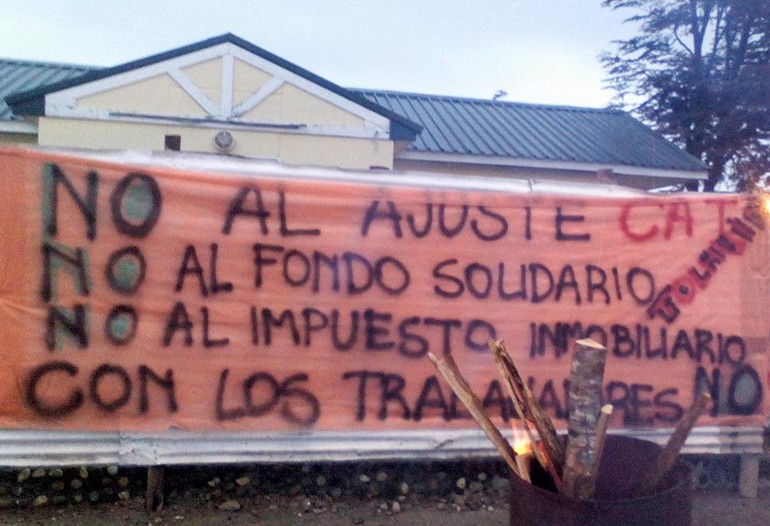 NO AL AJUSTE CAT
TOLHUIN
NO AL FONDO SOLIDARIO
NO AL IMPUESTO INMOBILIARIO
CON LOS TRABAJADORES NO